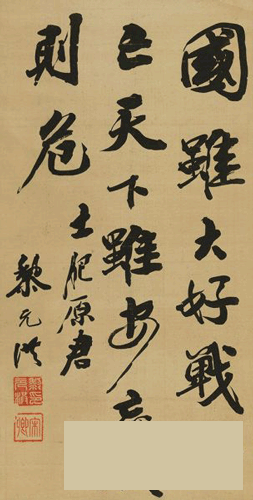 國雖大好戰
亡天下雖安忘
則危
土肥原君
黎元洪
宋卿